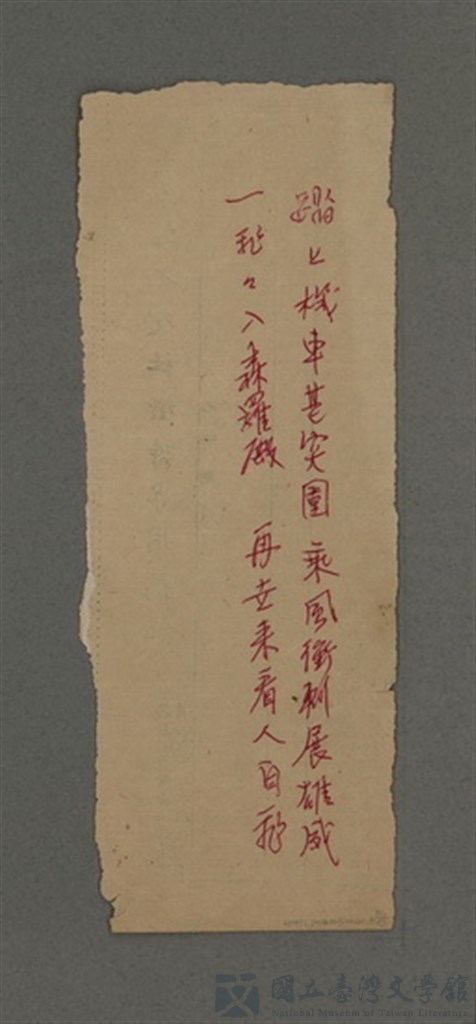 踏上機車甚突圍 乘風衝刺展雄威
一飛々入森羅殿 再世来看人自飛
國立臺灣文學館
National Museum of Taiwan Literature